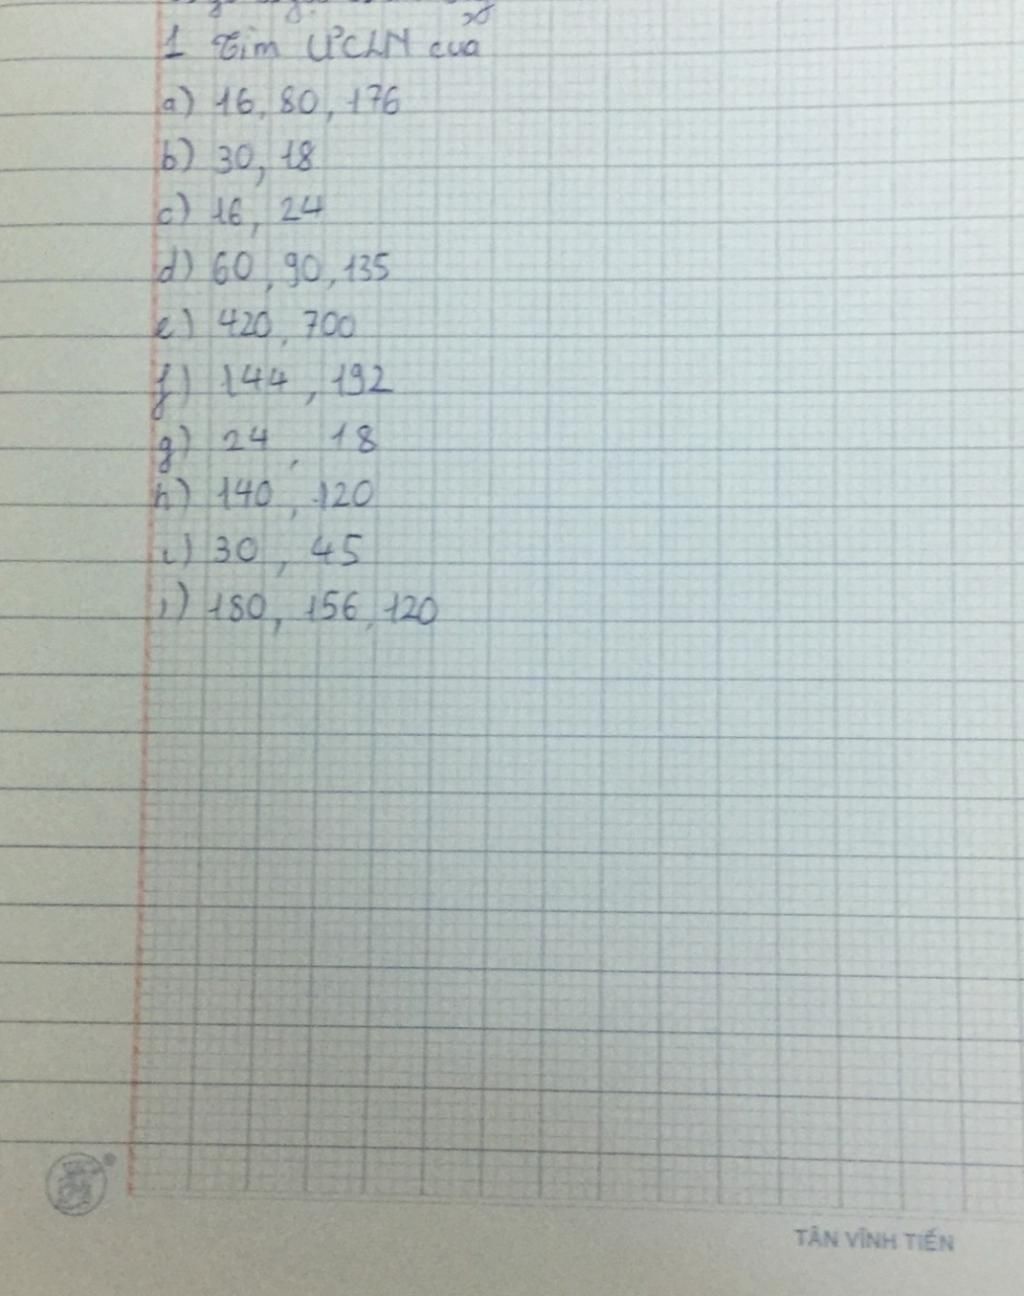 1 Tìm ƯCLN của
a) 16, 80, 176
b) 30, 18
c) 16, 24
d) 60, 90, 135
e) 420, 700
f) 144, 192
g) 24, 18
h) 140, 120
i) 30, 45
j) 180, 156, 120
TÂN VĨNH TIẾN